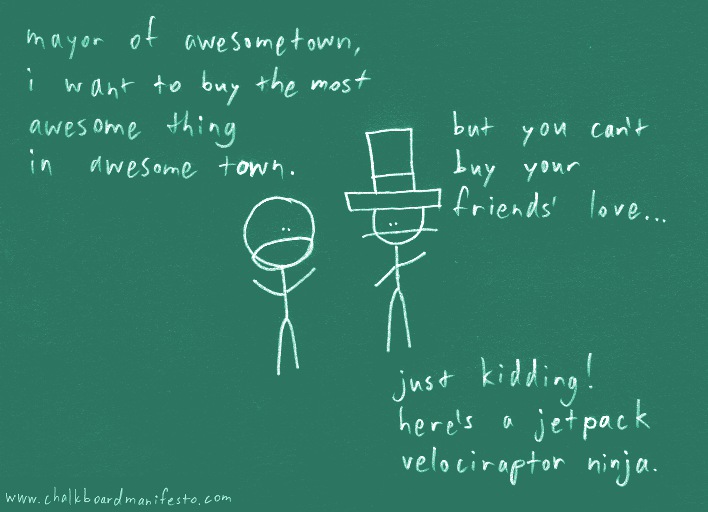 mayor of awesometown,
i want to buy the most
awesome thing
in awesome town.
but you can't
buy your
friends' love...
just kidding!
here's a jetpack
velociraptor ninja.
www.chalkboardmanifesto.com